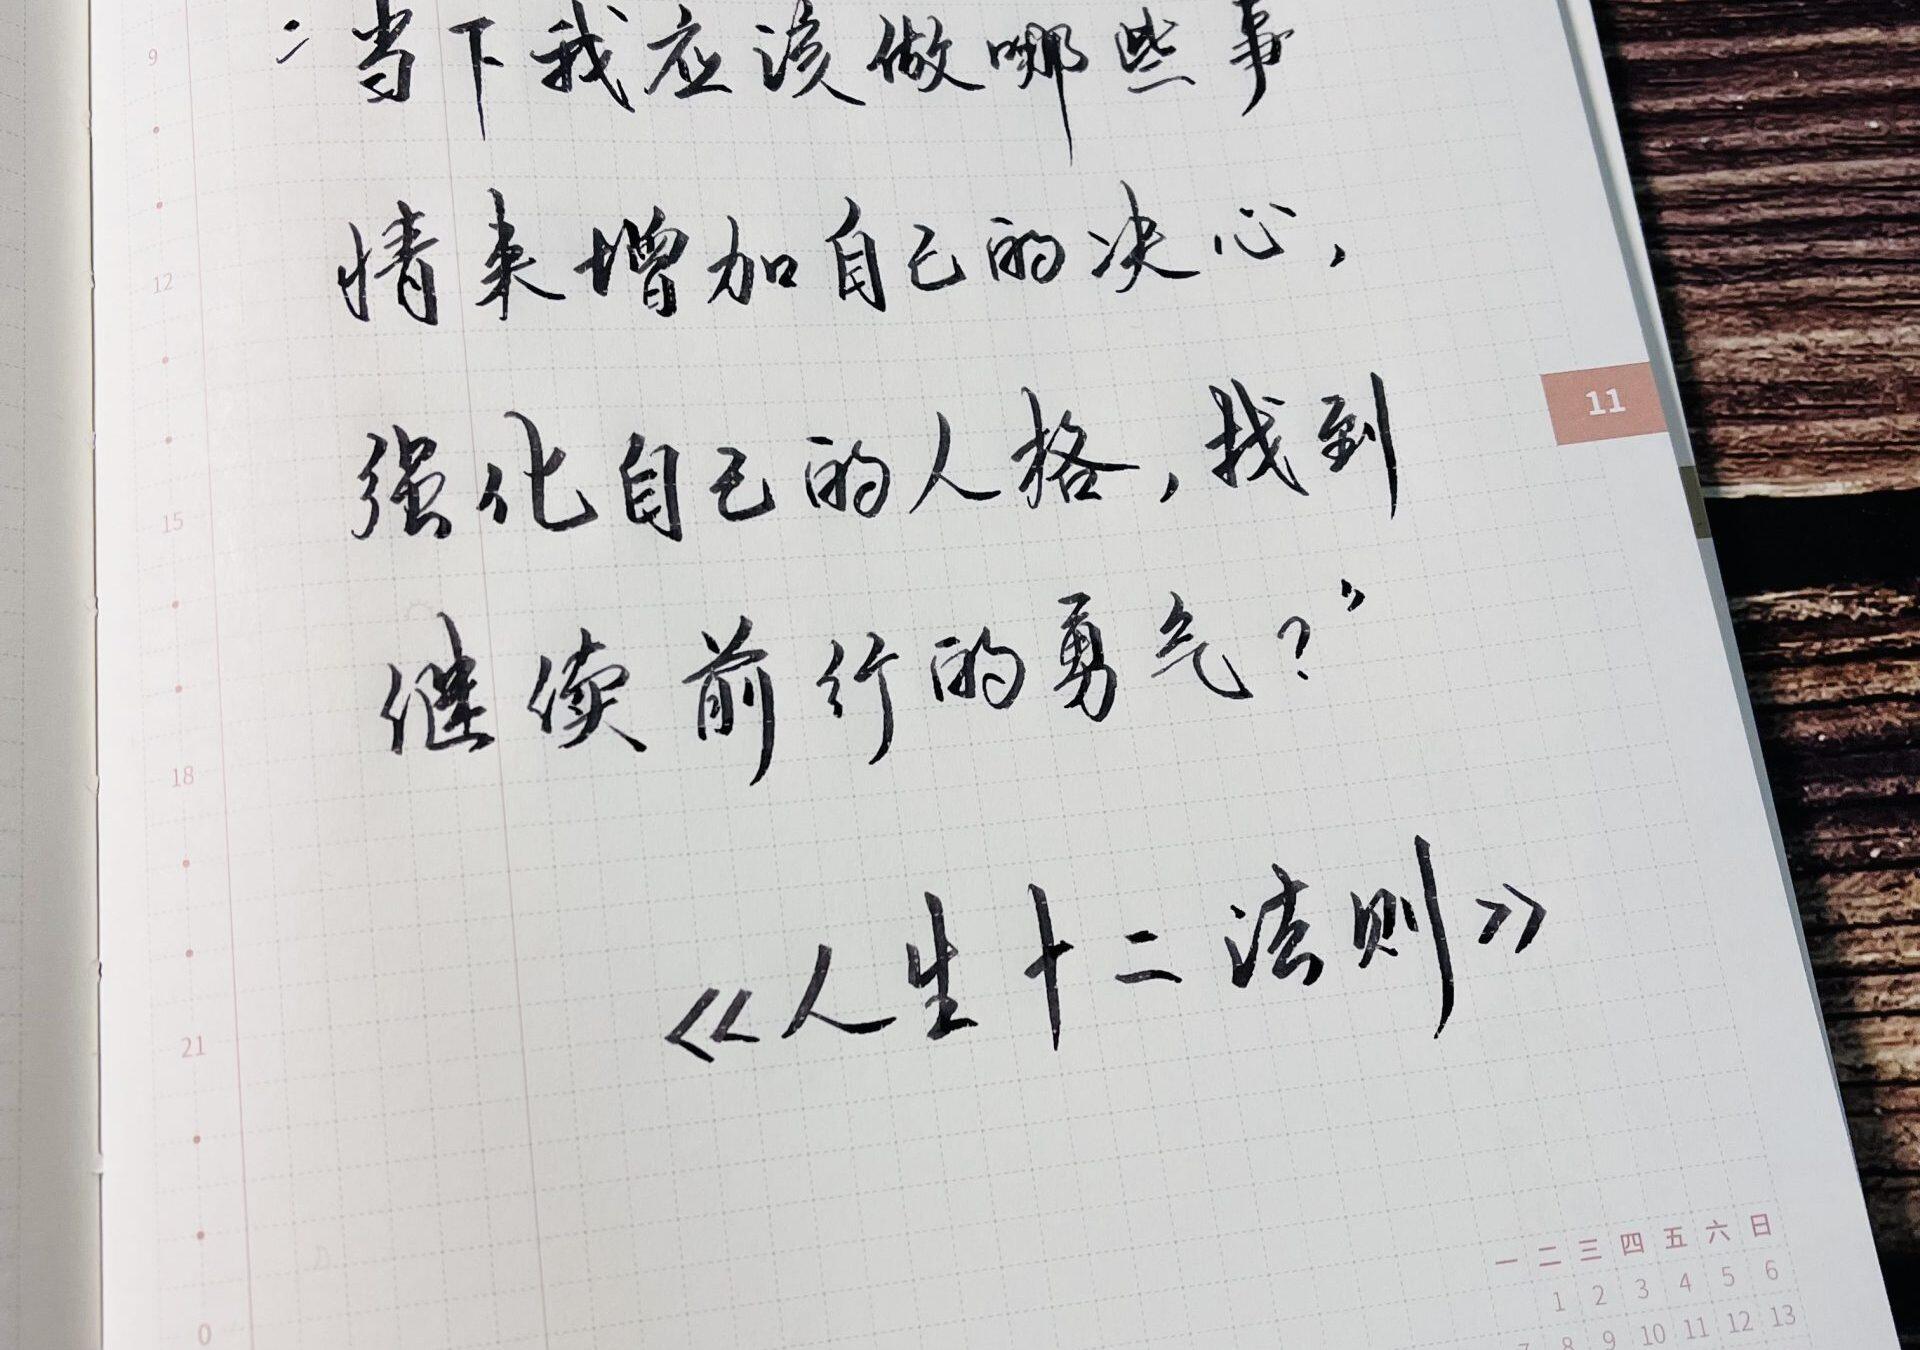 9
“当下我应该做哪些事
12
情来增加自己的决心，
11
15
强化自己的人格，找到
继续前行的勇气？”
18
《人生十二法则》
21
一 二 三 四 五 六 日
1 2 3 4 5 6
7 8 9 10 11 12 13
0